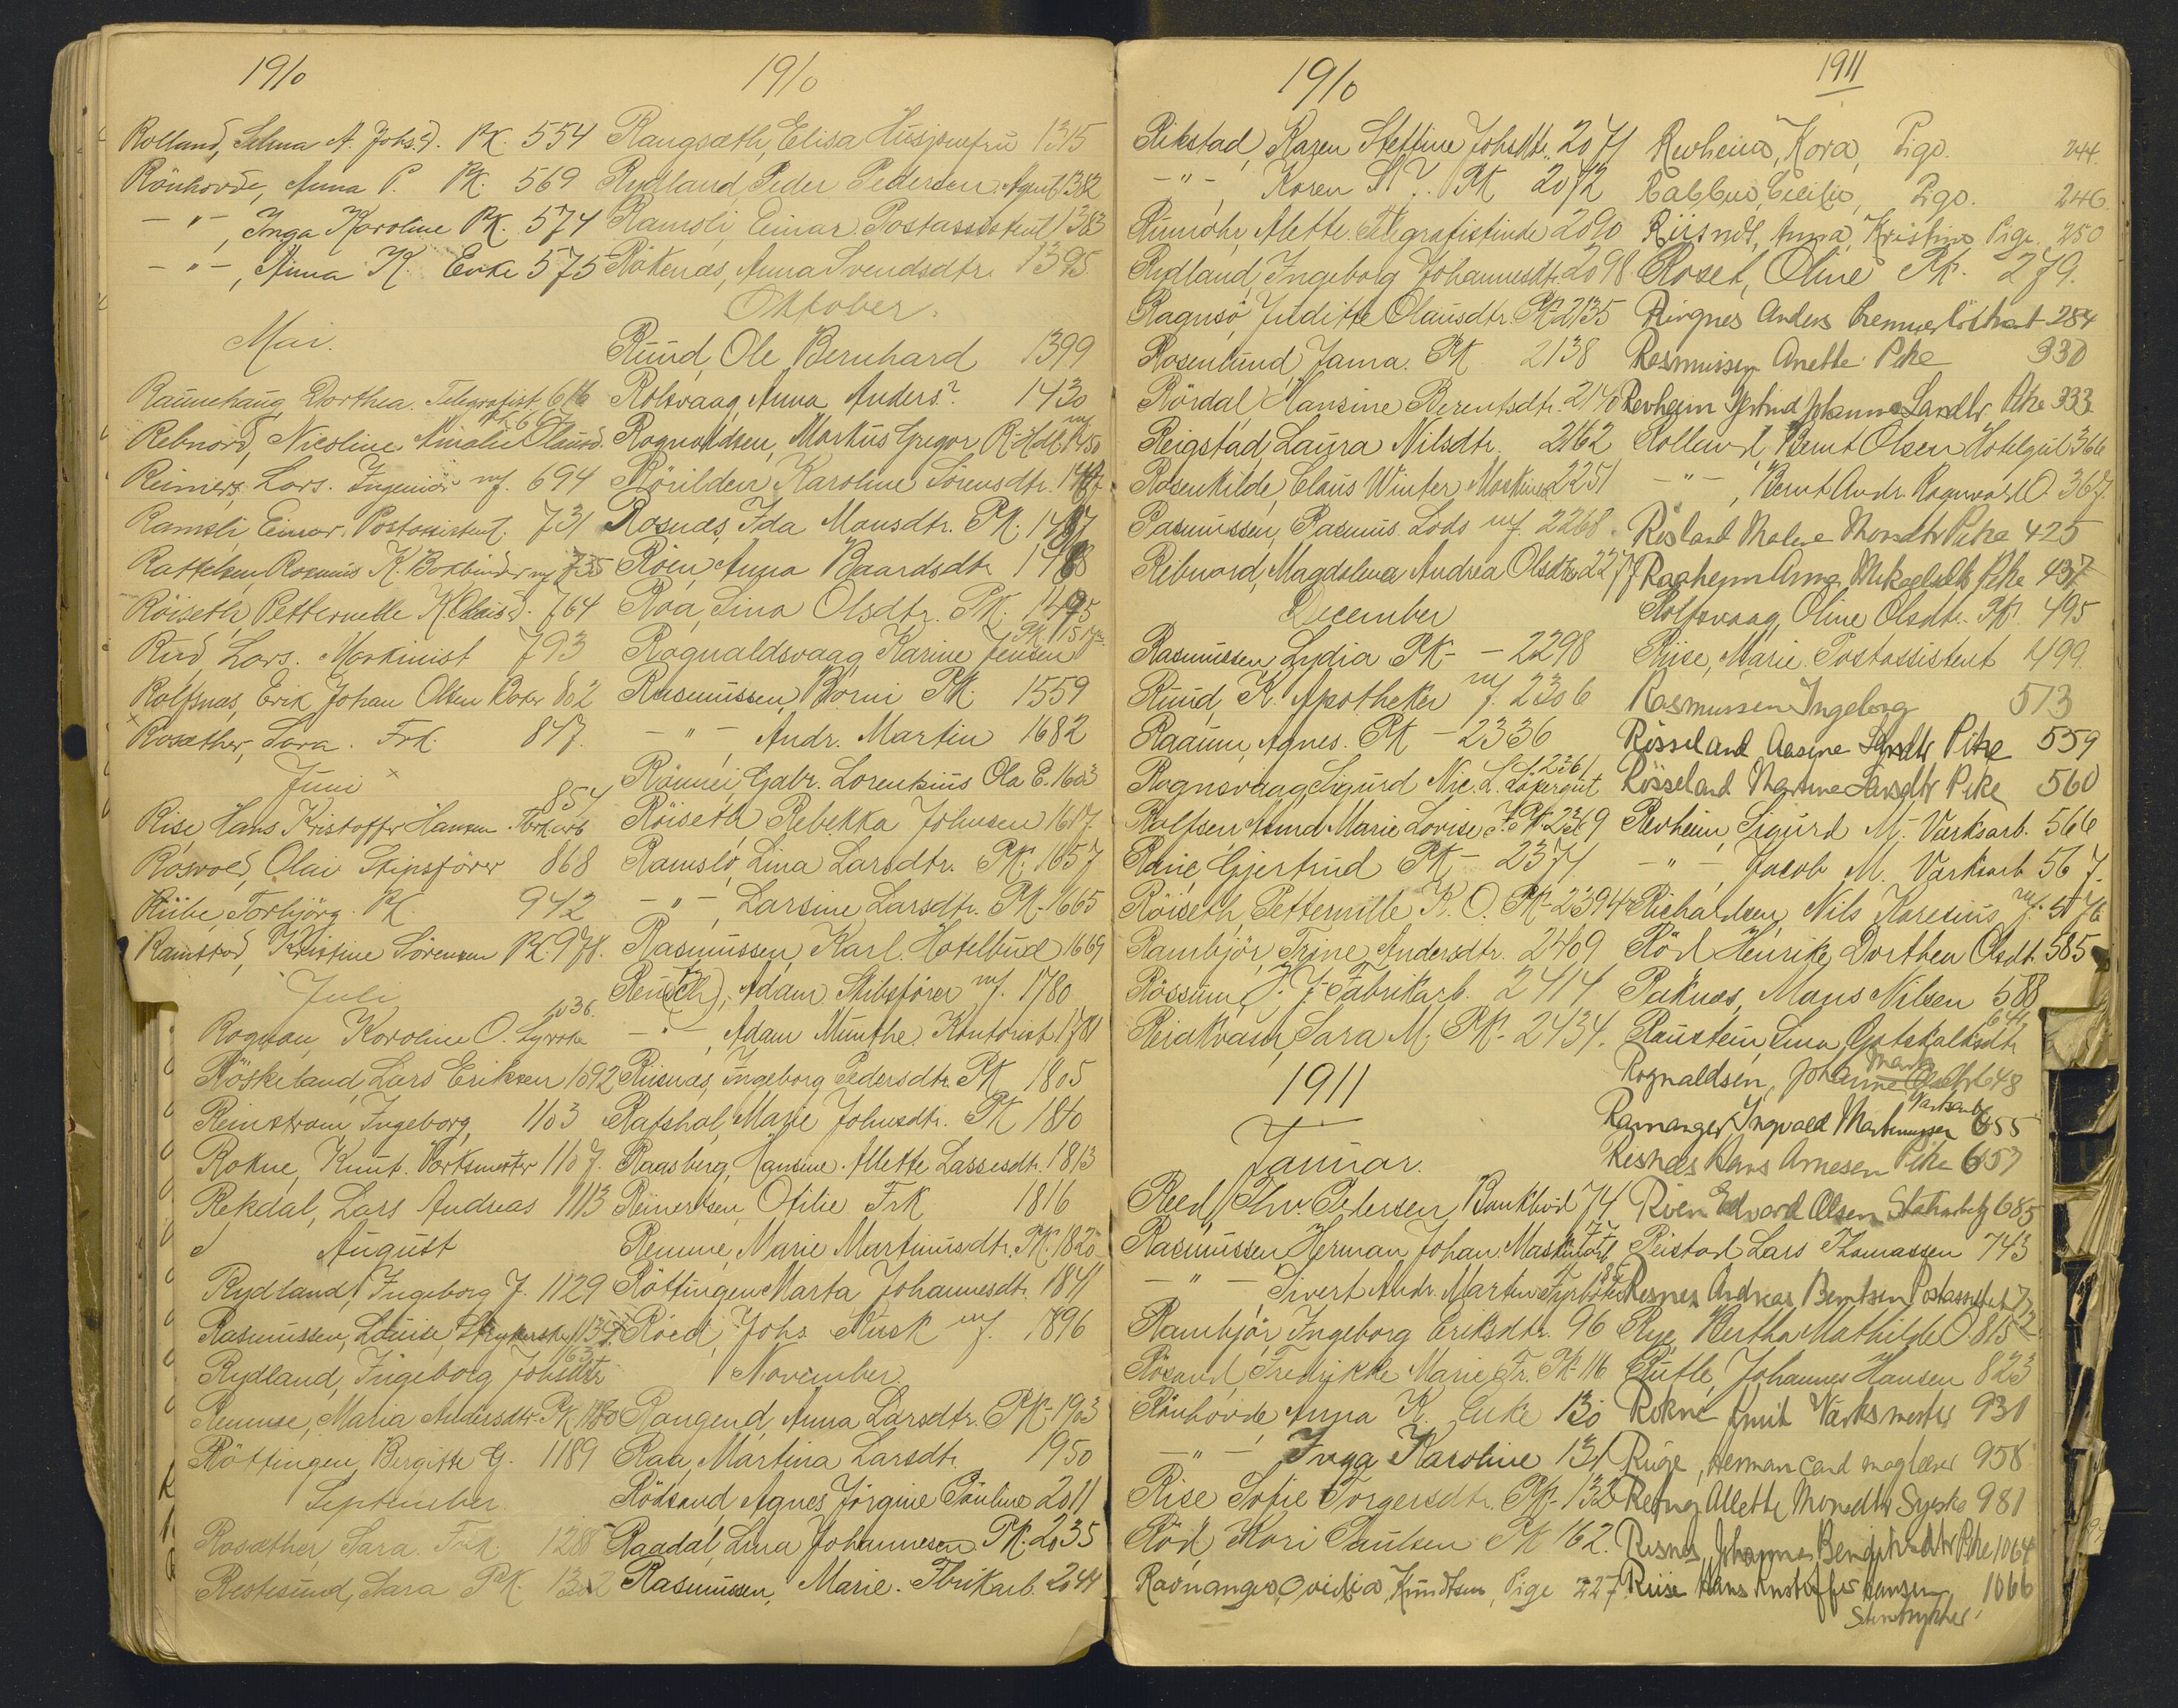 1910
Rolland, Selma A. Johs.d. PK. 554
Rönhovde, Anna P. PK. 569
-"-, Inga Karoline PK. 574
-"-, Anna K. Enke 575
Mai.
Raunehaug, Dorthea. Telegrafist. 616
Rebnord, Nicoline Amalie Olausd. PK 667
Reimers, Lars. Ingeniör m/f. 694
Ramsli, Einar. Postassistent. 731
Raffelsen Rasmus K. Bokbinder m/f 735
Röiseth, Petternelle K. Olais d. 764
Rud, Lars. Maskinist 793
Rolfsnas, Erik Johan Olsen 802
x Rosæther, Sara. Frk. 847.
Juni x
Rise, Hans Kristoffer Hansen. 854
Rosvold, Olai Skipsförer 868
Riibe, Torbjörg. PK. 942
Ramstad, Kristine Sörensen PK. 978.
Juli
Rognan, Karoline O. Syerske 1036.
Röskeland, Lars Eriksen 1092
Reinstrom, Ingeborg 1103
Rokne, Knut. Værksmester 1107.
Rekdal, Lars Andreas 1113
August
Rydland, Ingeborg J. 1129
Rasmussen, Louise, Strykerske 1137
Rydland, Ingeborg Johsdtr 1163
Remme, Maria Andersdtr. PK. 1180
Röttingen, Bergitte G. 1189
September
Rosæther, Sara. Frk. 1288
Restesund, Sara PK. 1302
1910
Rangsæth, Elisa Husjomfru 1315
Rydland, Peder Pedersen. Agent 1382
Ramsli, Einar. Postassistent 1383
Rökenæs, Anna Svendsdtr. 1395
Oktober.
Ruud, Ole Bernhard 1399
Rolsvaag, Anna Anders? 1430
Rognvaldsen, Markus Gregor R. Hdl. m/f 1450
Rörilden, Karoline Sörensdtr. 1477
Rosnæs, Ida Monsdtr. PK. 1487
Röen, Anna Baardsdtr 1488
Roa, Sina Olsdtr. PK. 1495
Rognaldsvaag, Karine Jensen PK. 1517
Rasmussen, Borni PK. 1559
-"- Andr. Martin 1682
Rönnei, Gabr. Lorentsius Ola E. 1603
Röiseth, Rebekka Johnsen 1617.
Ramslo, Lina Larsdtr. PK. 1657
-"-, Larsine Larsdtr. PK. 1665
Rasmussen, Karl. Hotelbud 1669
Reusch, Adam. Skibsförer m/f. 1780
-"-, Adam Munthe. Kontorist 1781
Riisnæs, Ingeborg Pedersdtr. PK. 1805
Rafshol, Marie Johnsdtr. PK 1810
Raasberg, Hansine Mette Lassesdtr. 1813
Reinertsen, Otilie Frk 1816
Remme, Marie Martinusdtr. PK. 1820
Röttingen Marta Johannesdtr. 1841
Röed, Johs Kusk m/f. 1896
November.
Raugend, Anna Larsdtr. PK. 1903
Raa, Martina Larsdtr. 1950
Rödsand, Agnes Jörgine Pauline 2011
Raadal, Lina Johannesen PK. 2035
Rasmussen, Marie. Fbrikarb. 2044
1910
Rikstad, Karen Steffine Johsdtr. 2071
-"-, Karen S. J. PK 2072
Rumohr, Mette. Telegrafistinde 2090
Rydland, Ingeborg Johannesdtr. 2098
Ragnsö, Juditte Olausdtr. PK 2135
Rosenlund, Jama. PK 2138
Rördal, Hansine Berentsdtr. 2140
Reigstad, Laura Nilsdtr. 2162
Rosenkilde, Claus Winter, Maskinist 2251
Rasmussen, Rasmus. Lods m/f. 2268.
Rebnord, Magdalena Andrea Olsdtr 2277
December
Rasmussen, Lydia PK - 2298
Ruud, K. Apotheker m/f. 2306
Raaum, Agnes. PK - 2336
Rognsvaag, Sigurd Nic. L. Löpergut 2361
Rolfsen, Aund Marie Lovise J. PK. 2369
Rane, Gjertrud PK - 2374
Röiseth, Petternille K. O. PK. 2394
Rambjör, Trine Andersdtr. 2409
Rössum, J. J. Fabrikarb. 2414
Reiakvam, Sara M. PK. 2434.
1911
Januar.
Reed, Thv. Pedersen Bankbud 74
Rasmussen, Herman Johan. Maskinarb. 77
-"- Sivert Andr. Martin. Fyrböter
Rambjör, Ingeborg Eriksdtr. 96
Rösand, Fredrikke Marie Fr. PK. 116
Rönhovde, Anna K. Enke 130
-"- Inga Karoline 131
Rise Sofie Torgersdtr. PK. 132
Röd, Kari Paulsen PK 162.
Ravnanger, Ovidia Knudtsen, Pige 227
1911
Revheim, Kora, Pige. 244.
Rabbus, Cecilie, Pige. 246.
Riisnds, Anna, Kristine, Pige. 250
Roset, Oline PK. 279.
Ringnes Anders 284
Rasmussen Anette Pike 330
Revheim Gjertrud Johanne Larsdtr Pike 333
Rolland, Bernt Olsen Hotelgut 366
-"-, Bernt Andr. Ragnvard O. 367.
Risland Malene Monsdtr Pike 425
Raaheim Anna Mikaelsdtr Pike 437
Rolfsvaag, Oline Olsdtr. PK. 495
Riise, Marie. Postassistent 499.
Rasmussen Ingeborg 513
Rösseland Aasine Larsdtr Pike 559
Rösseland Martine Larsdtr Pike 560
Revheim, Sigurd M. Værksarb. 566
-"- Jacob M. Værksarb 567.
Richardsen, Nils Karesius m/f. 576
Röd Henrike Dorthea Olsdt. 585
Reknes, Mons Nilsen 588
Raustein, Lina Gotskalksdtr 641
Rognaldsen, Johanne Marta Olsdtr 648
Ramanger Ingvald Martinussen Værksarb 655
Resnes Hans Arnesen Pike 657
Röen Edvard Olsen 685
Reistad Lars Thomassen 743
Resnes Andreas Berntsen Postassistent 772
Rye, Bertha Mathilde O. 815
Rutle, Johannes Hansen 823
Rokne Knut Værksmester 930
Ruge, Herman cand mag lærer 958
Reing Allette Monsdtr Syerske 981
Risnes, Johanne Bengtsdtr Pike 1064
Riise Hans Kristoffer Hansen, 1066
Stentrykker